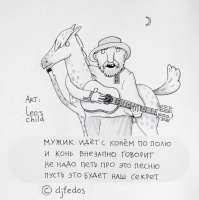 Art:
Leo's
child
мужик идёт с конём по полю
и конь внезапно говорит
не надо петь про это песню
пусть это будет наш секрет
© djfedos